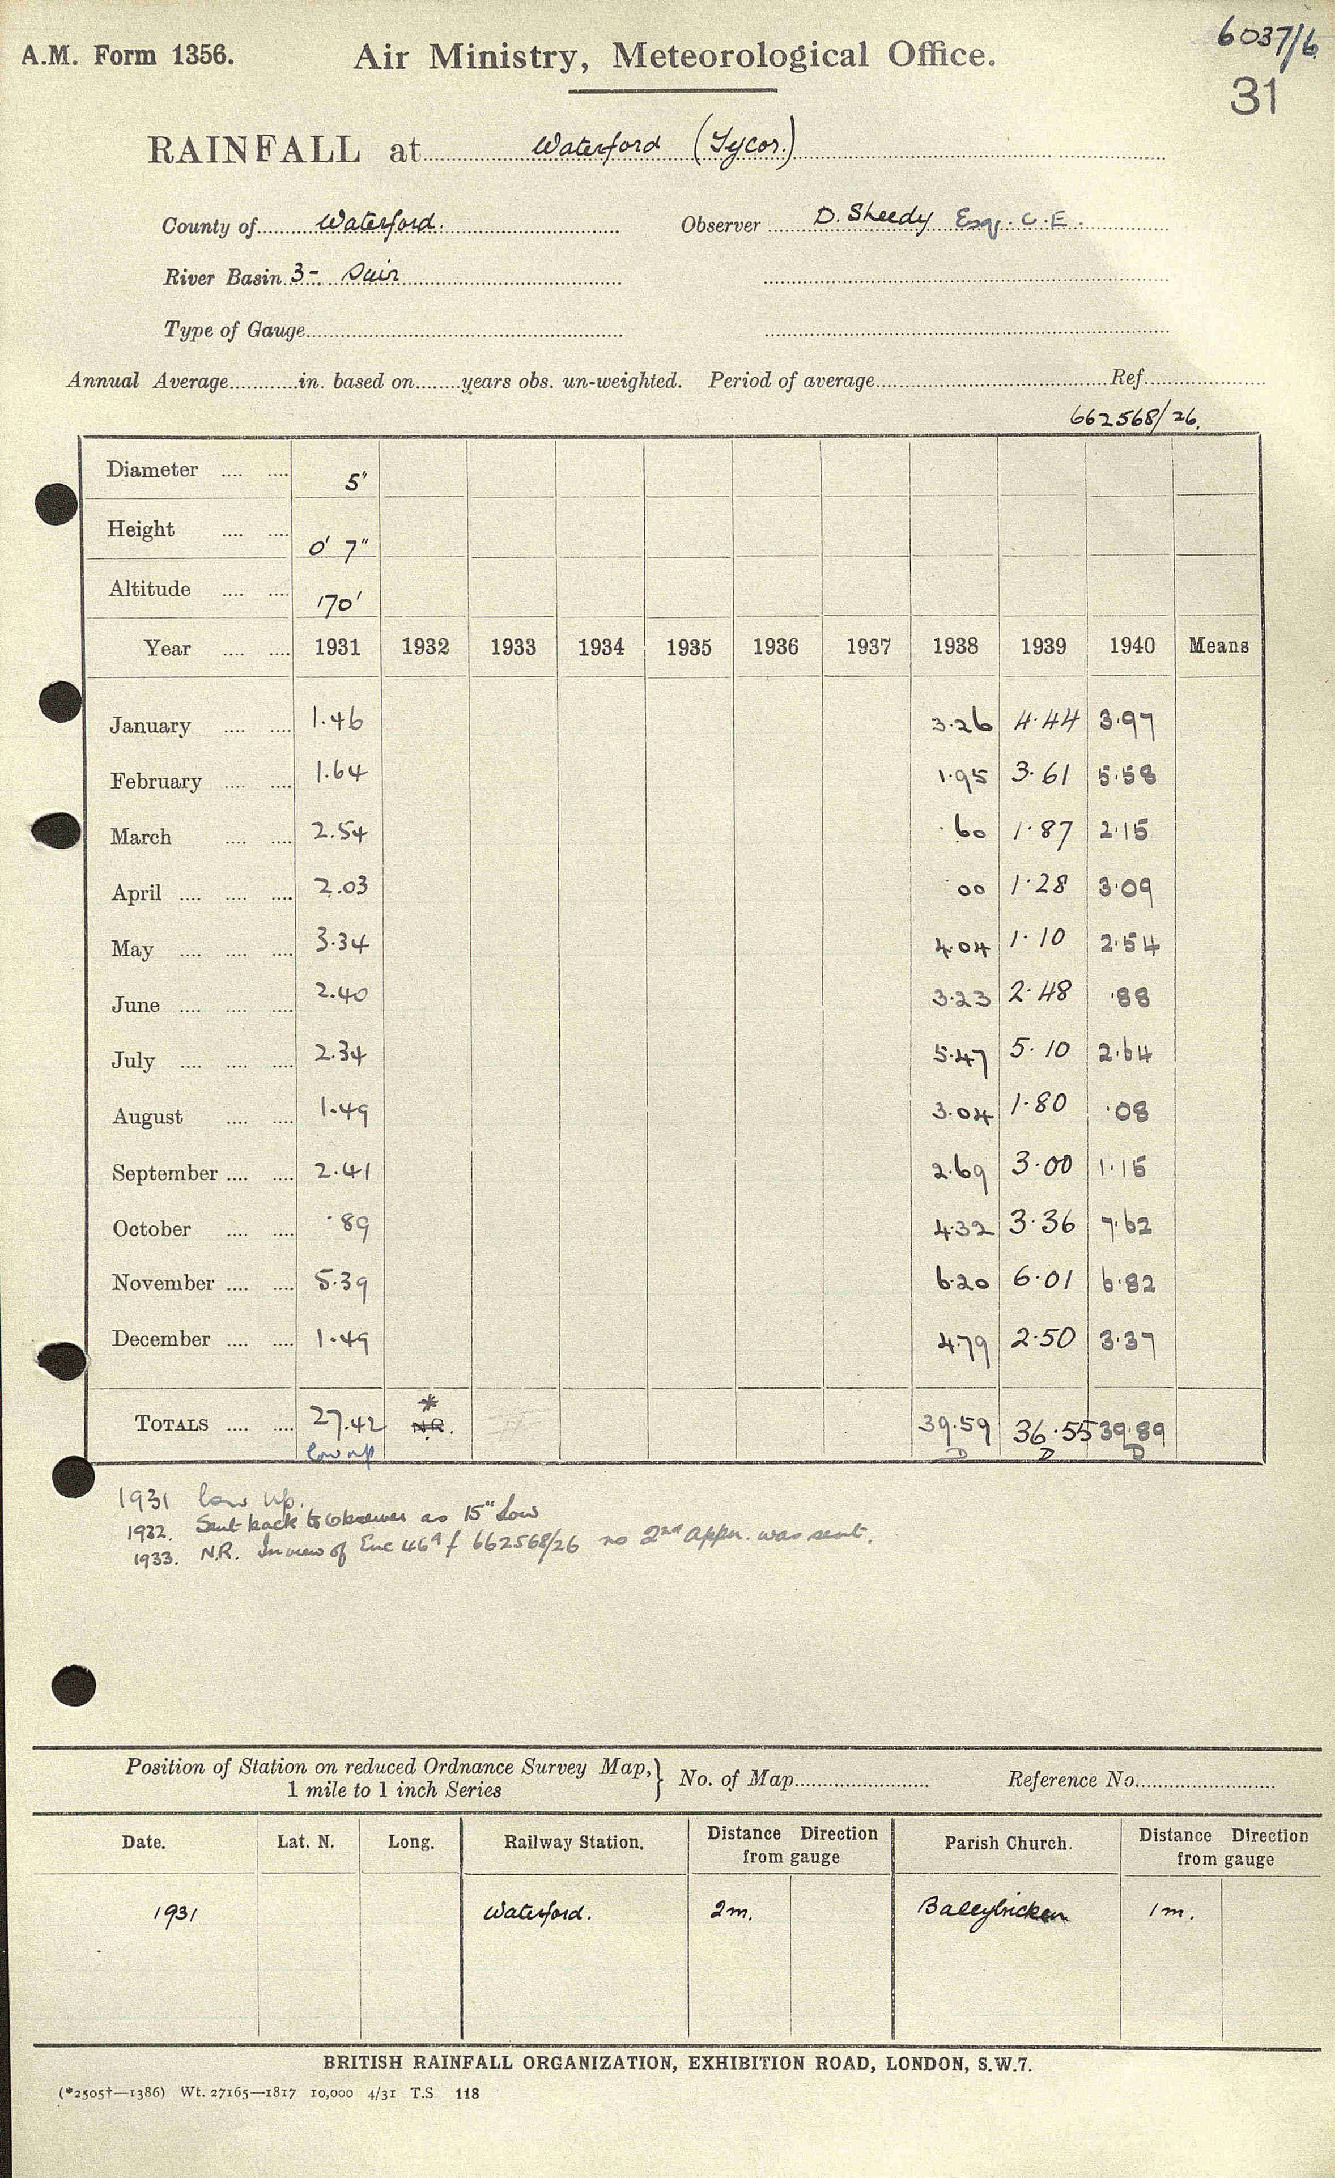 6037/6
A.M. Form 1356. Air Ministry, Meteorological Office.
31
RAINFALL at Waterford (Tycor.)
County of Waterford. Observer D. Sheedy Esq. C.E.
River Basin 3- Suir
Type of Gauge
Annual Average in. based on years obs. un-weighted. Period of average Ref.
662568/26.
Diameter 5"
Height 0' 7"
Altitude 170'
Year 1931 1932 1933 1934 1935 1936 1937 1938 1939 1940 Means
January 1.46 3.26 4.44 3.97
February 1.64 1.95 3.61 5.58
March 2.54 .60 1.87 2.15
April 2.03 .00 1.28 3.09
May 3.34 4.04 1.10 2.54
June 2.40 3.23 2.48 .88
July 2.34 5.47 5.10 2.64
August 1.49 3.04 1.80 .08
September 2.41 2.69 3.00 1.15
October .89 4.32 3.36 7.62
November 5.39 6.20 6.01 6.82
December 1.49 4.79 2.50 3.37
*
TOTALS 27.42 N.R. 39.59 36.55 39.89
low up D D D
1931 low up.
1932. Sent back to Observer as 15" low
1933. N.R. In view of Enc 46a f 662568/26 no 2nd appn. was sent.
Position of Station on reduced Ordnance Survey Map, } No. of Map Reference No.
1 mile to 1 inch Series
Date. Lat. N. Long. Railway Station. Distance Direction from gauge Parish Church. Distance Direction from gauge
1931 Waterford. 2m. Ballybricken 1m.
BRITISH RAINFALL ORGANIZATION, EXHIBITION ROAD, LONDON, S.W.7.
(*2505†—1386) Wt. 27165—1817 10,000 4/31 T.S 118